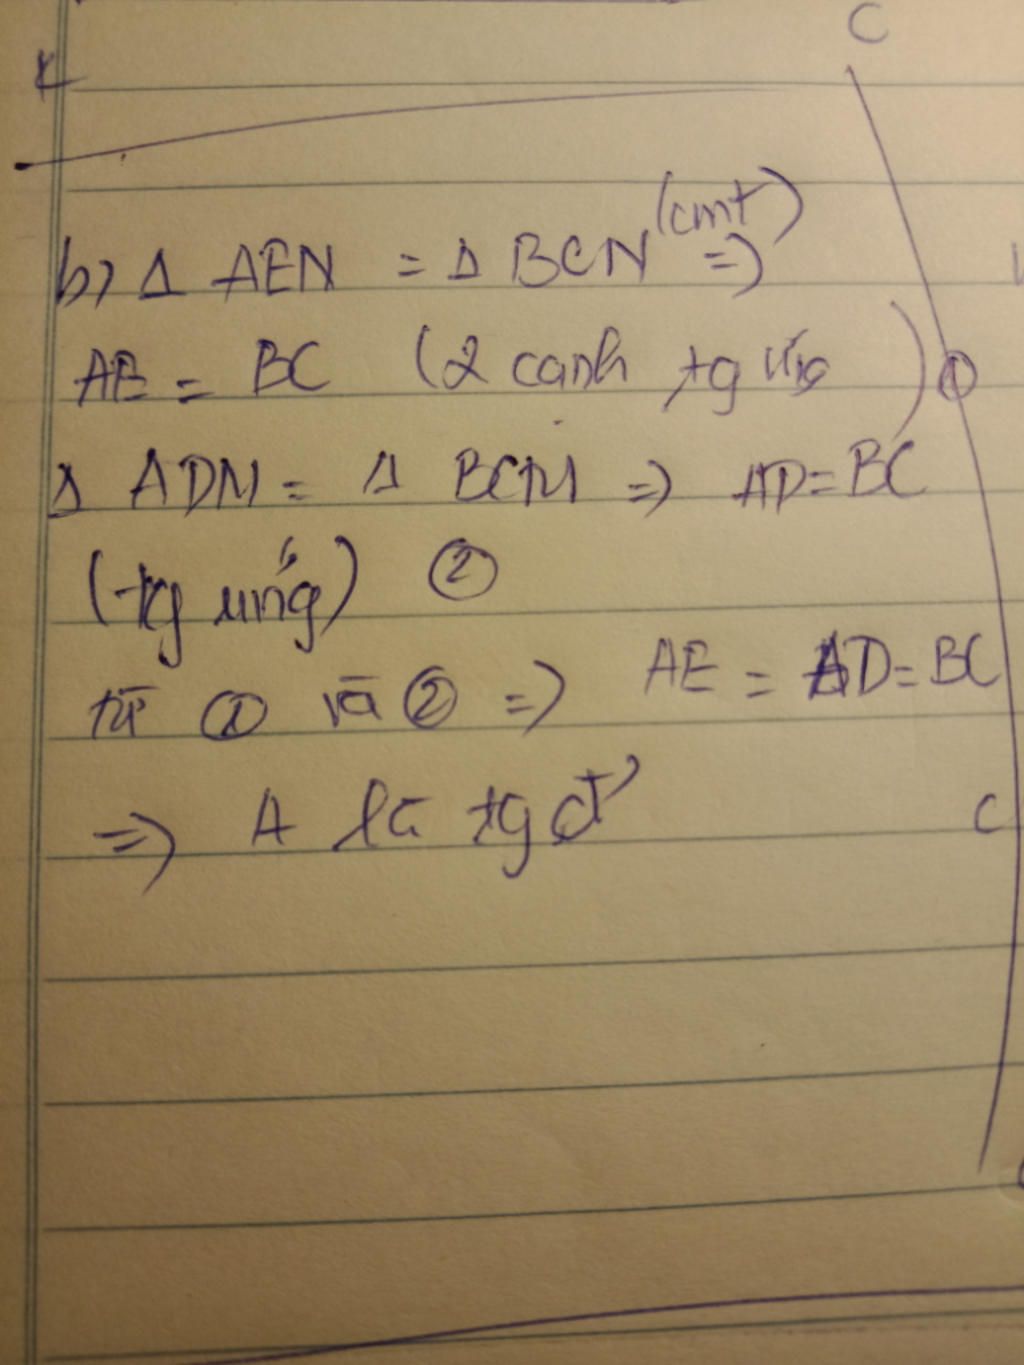 K
C
b) Δ AEN = Δ BCN (cmt) =>
AE = BC (2 cạnh tg ứng) ①
Δ ADM = Δ BCM => AD = BC
(tg ứng) ②
từ ① và ② => AE = AD = BC
=> A là tg đ'
C